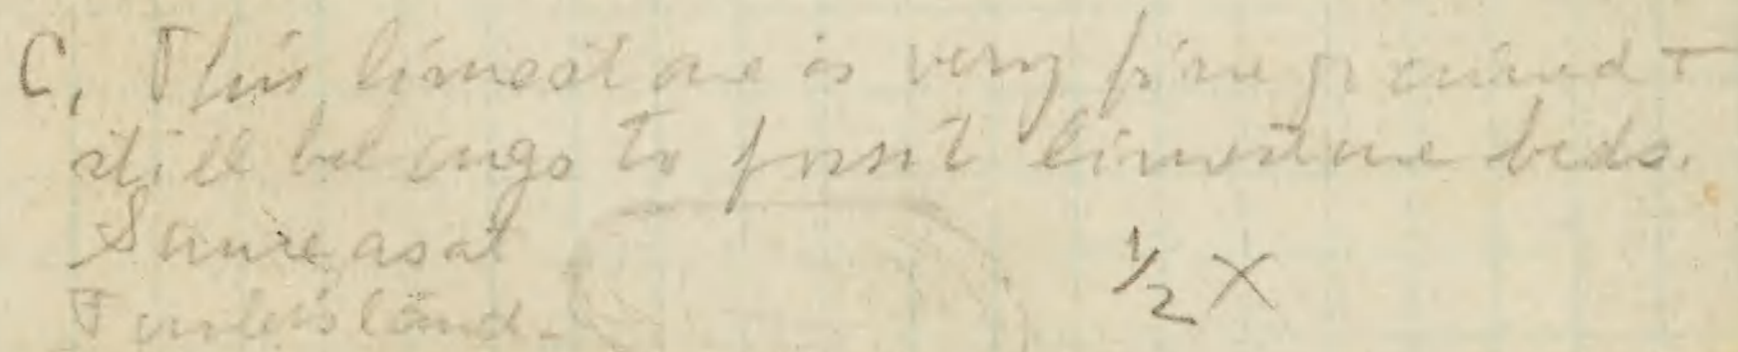 C, This limestone is very fine grained +
still belongs to fossil limestone beds.
Same as at
½ X